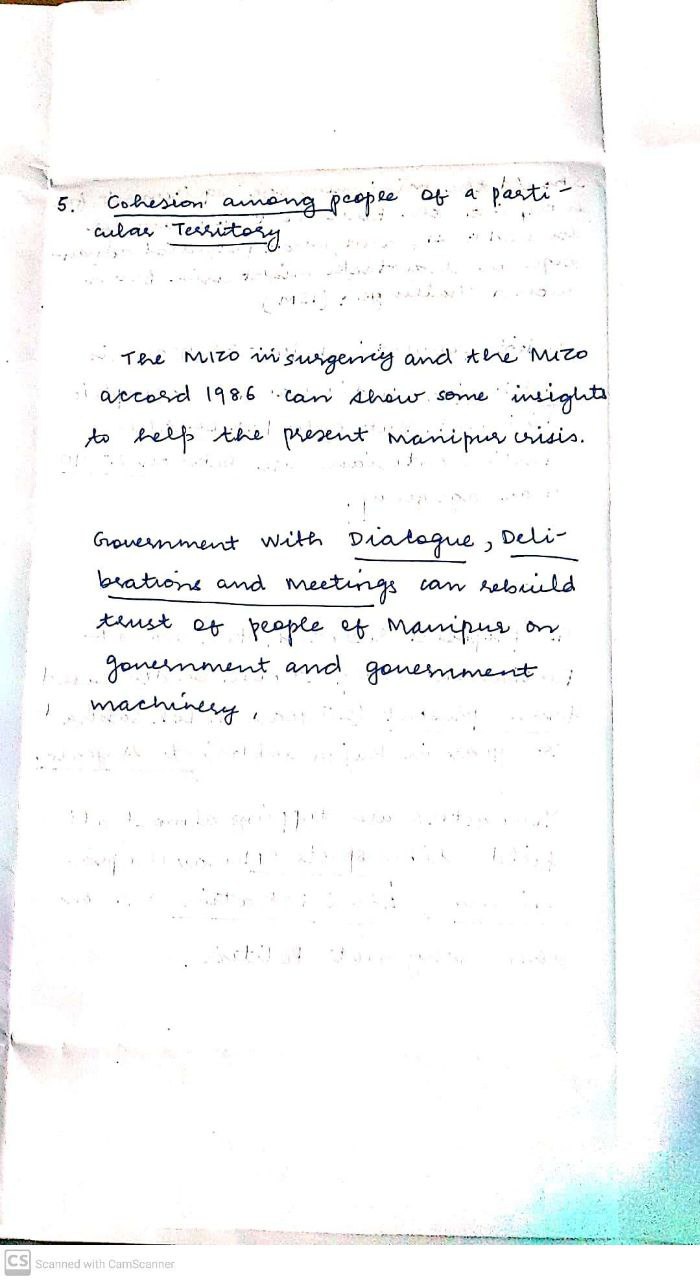 5. Cohesion among people of a parti-
cular Territory
The MIZO insurgency and the MIZO
accord 1986 can show some insights
to help the present Manipur crisis.
Government with Dialogue, Deli-
brations and Meetings can rebuild
trust of people of Manipur on
government and government
machinery.
CS Scanned with CamScanner